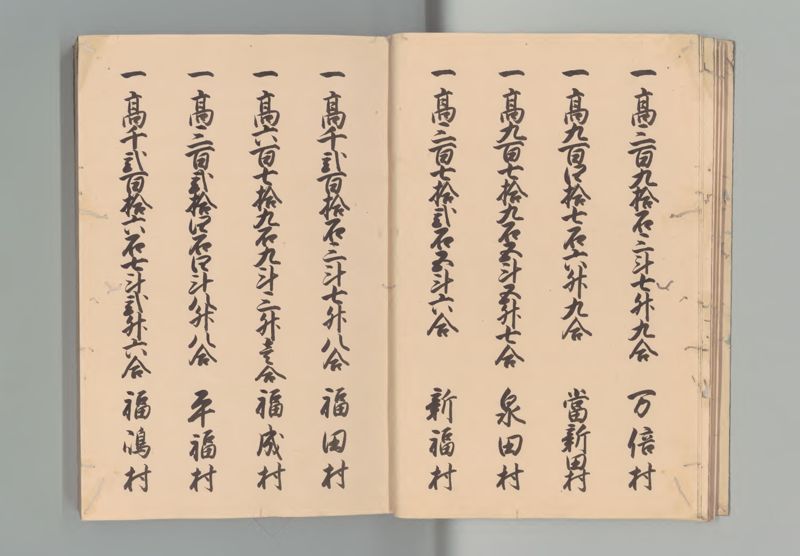 一高三百九拾石三斗七升九合 万倍村
一高九百四拾七石六升九合 當新田村
一高九百七拾九石五斗五升七合 泉田村
一高三百七拾弐石五斗六合 新福村
一高千弐百拾石三斗七升八合 福田村
一高六百七拾九石九斗三升壱合 福成村
一高三百弐拾四石四斗八升八合 平福村
一高千弐百拾六石七斗弐升六合 福嶋村